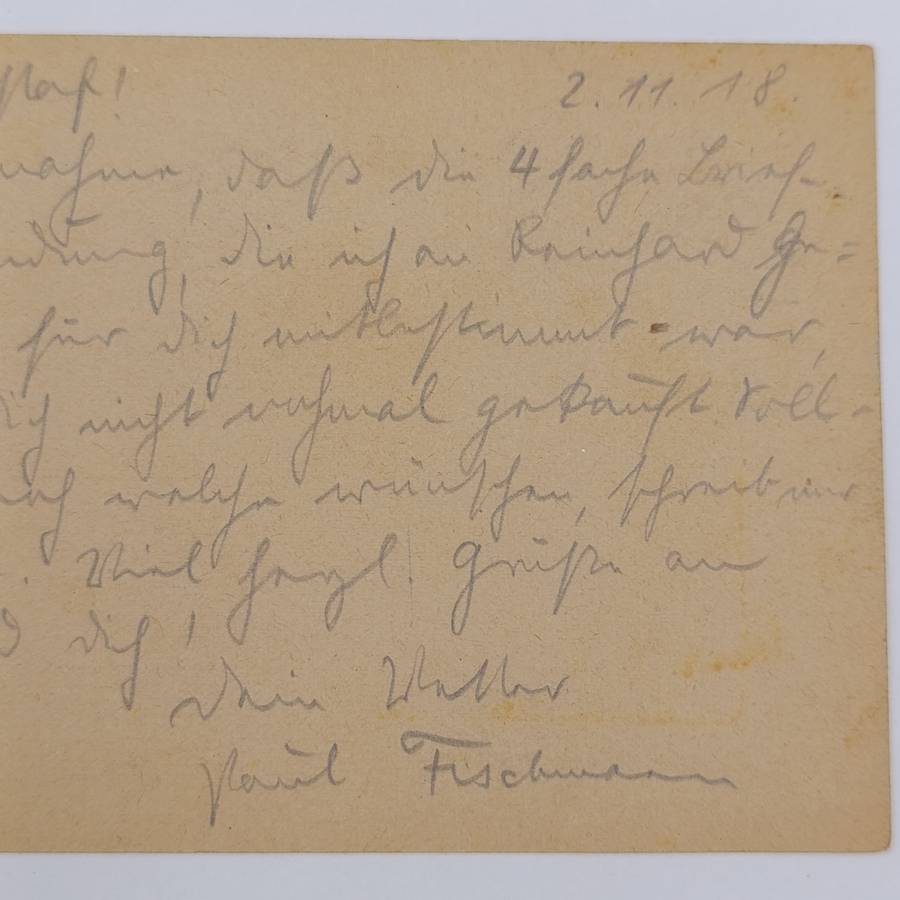 2. 11. 18.
nahme, daß die 4 fache Brief-
ndung, die ich an Reinhard Ge=
für dich mitbestimmt war,
ich nicht nochmal gekauft. Soll-
noch welche wünschen, schreib mir
. Viel herzl. Grüße an
d dich!
Dein Vetter
Paul Fischmann